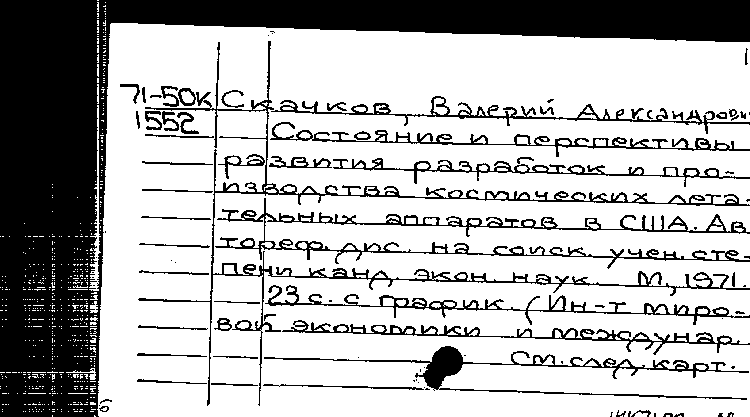 71-50к Скачков, Валерий Александрович
1552 Состояние и перспективы
развития разработок и про-
изводства космических лета-
тельных аппаратов в США. Ав
тореф. дис. на соиск. учен. сте-
пени канд. экон. наук. М., 1971.
23 с. с график. (Ин-т миро-
вой экономики и междунар.
См. след. карт.